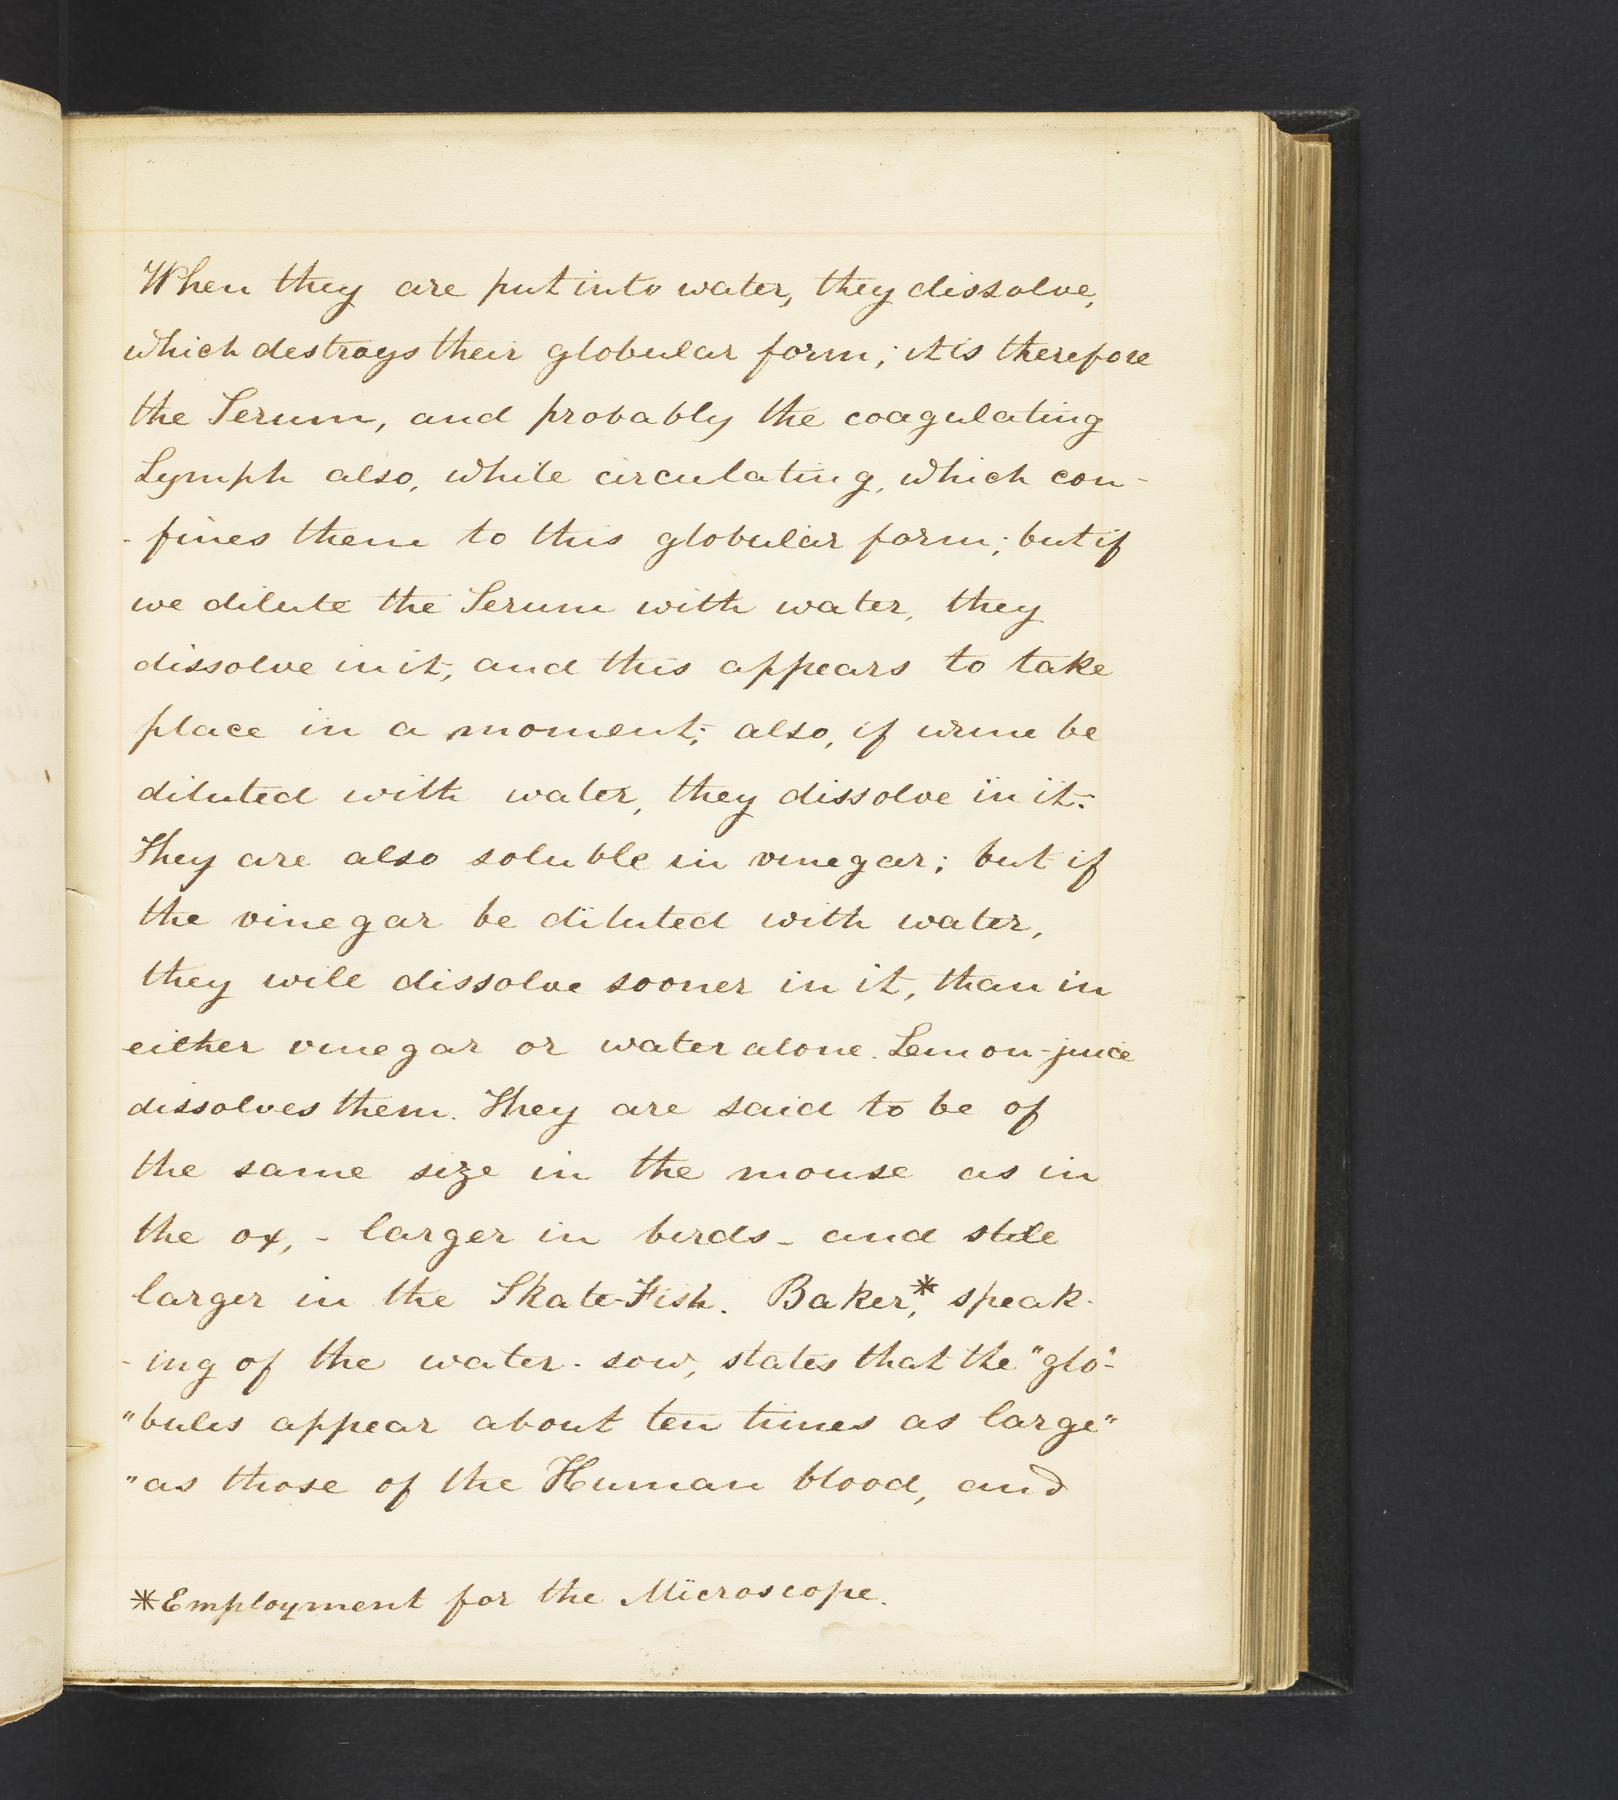 When they are put into water, they dissolve,
which destroys their globular form; it is therefore
the Serum, and probably the coagulating
Lymph also, while circulating, which con-
-fines them to this globular form; but if
we dilute the Serum with water, they
dissolve in it, and this appears to take
place in a moment; also, if urine be
diluted with water, they dissolve in it.
They are also soluble in vinegar; but if
the vinegar be diluted with water,
they will dissolve sooner in it, than in
either vinegar or water alone. Lemon-juice
dissolves them. They are said to be of
the same size in the mouse as in
the ox, - larger in birds - and still
larger in the Skate-Fish. Baker,* speak-
-ing of the water-sow, states that the "glo-
"bules appear about ten times as large"
"as those of the Human blood, and
*Employment for the Microscope.